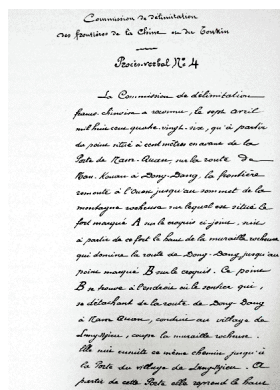 Commission de délimitation
des frontières de la Chine et du Tonkin
Procès-verbal No 4
La Commission de délimitation
franco-chinoise a reconnu, le sept avril
mil huit cent quatre-vingt-six, qu'à partir
du point situé à cent mètres en avant de la
Porte de Nam-Quan, sur la route de
Nam-Quan à Dong-Dang, la frontière
remonte à l'Ouest jusqu'au sommet de la
montagne rocheuse sur lequel est situé le
fort marqué A sur le croquis ci-joint, suit
à partir de ce fort le haut de la muraille rocheuse
qui domine la route de Dong-Dang jusqu'au
point marqué B sur le croquis. Ce point
B se trouve à l'endroit où le sentier qui,
se détachant de la route de Dong-Dang
à Nam-Quan, conduit au village de
coupe la muraille rocheuse.
Elle suit ensuite ce même chemin jusqu'à
la Porte du village de
A
partir de cette Porte elle reprend le haut